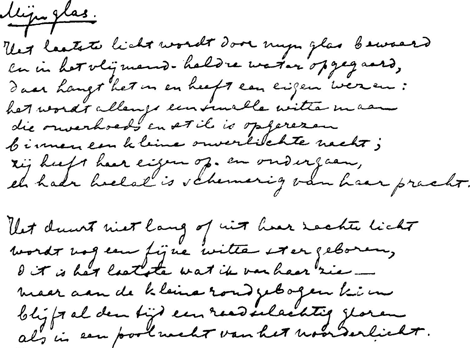 Mijn glas.
Het laatste licht wordt door mijn glas bewaard
en in het vlijmend-heldre water opgegaard,
daar hangt het in en heeft een eigen wezen:
het wordt allengs een smalle witte maan
die onverhoeds en stil is opgerezen
binnen een kleine onverlichte nacht;
zij heeft haar eigen op- en ondergaan,
en haar heelal is schemerig van haar pracht.
Het duurt niet lang of uit haar zachte licht
wordt nog een fijne witte ster geboren,
Dit is het laatste wat ik van haar zie —
maar aan de kleine rondgebogen kim
blijft al den tijd een raadselachtig gloren
als in een poolnacht van het noorderlicht.